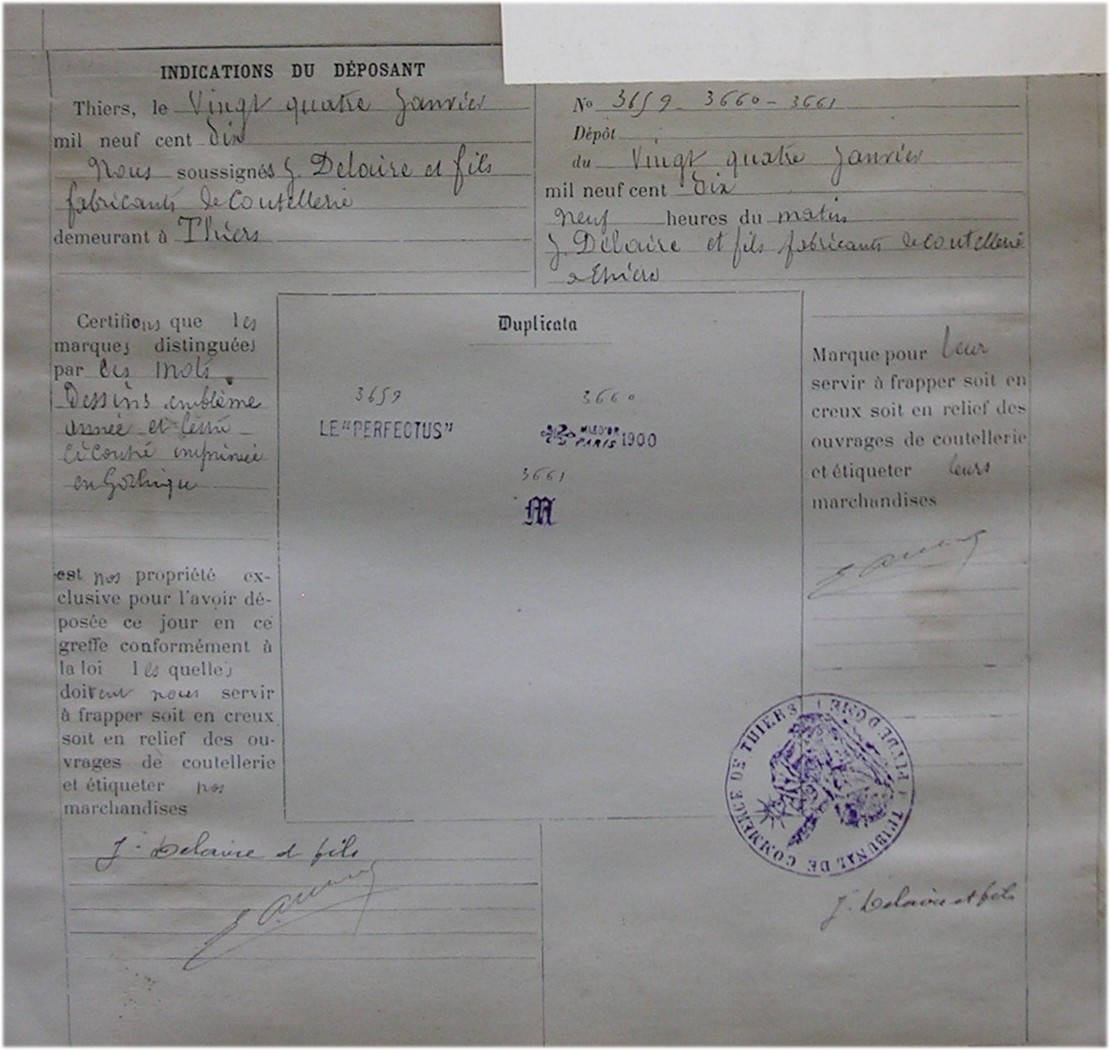 INDICATIONS DU DÉPOSANT
Thiers, le Vingt quatre Janvier
mil neuf cent Dix
Nous soussignés J. Delaire et fils
fabricants de Coutellerie
demeurant à Thiers
No 3659 - 3660 - 3661
Dépôt
du Vingt quatre Janvier
mil neuf cent Dix
Neuf heures du matin
J. Delaire et fils fabricants de coutellerie
a Thiers
Certifions que les
marques distinguées
par les mots
Dessins emblème
année et
imprimée
en Gothique
est nos propriété ex-
clusive pour l'avoir dé-
posée ce jour en ce
greffe conformément à
la loi les quelles
doivent nous servir
à frapper soit en creux
soit en relief des ou-
vrages de coutellerie
et étiqueter nos
marchandises
Duplicata
3659
LE "PERFECTUS"
3660
PARIS 1900
3661
M
Marque pour leur
servir à frapper soit en
creux soit en relief des
ouvrages de coutellerie
et étiqueter leurs
marchandises
TRIBUNAL DE COMMERCE DE THIERS (PUY DE DOME)
J. Delaire et fils
J. Delaire et fils